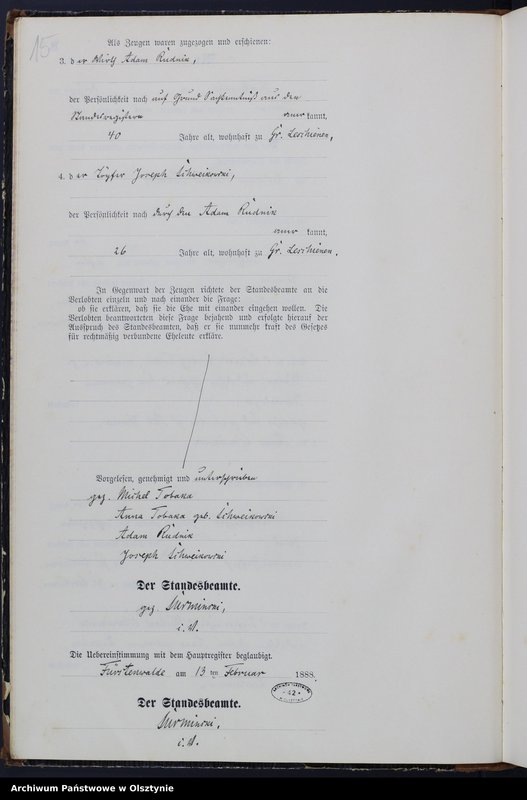 15
Als Zeugen waren zugezogen und erschienen:
3. der Wirth Adam Rudnik,
der Persönlichkeit nach auf Grund Sachkenntniß aus den
Standesregistern aner kannt,
40 Jahre alt, wohnhaft zu Gr. Leschienen,
4. der Töpfer Joseph Schweikowski,
der Persönlichkeit nach durch den Adam Rudnik
aner kannt,
26 Jahre alt, wohnhaft zu Gr. Leschienen.
In Gegenwart der Zeugen richtete der Standesbeamte an die
Verlobten einzeln und nach einander die Frage:
ob sie erklären, daß sie die Ehe mit einander eingehen wollen. Die
Verlobten beantworteten diese Frage bejahend und erfolgte hierauf der
Ausspruch des Standesbeamten, daß er sie nunmehr kraft des Gesetzes
für rechtmäßig verbundene Eheleute erkläre.
Vorgelesen, genehmigt und unterschrieben
gez. Michel Tobaka
Anna Tobaka geb. Schweikowski
Adam Rudnik
Joseph Schweikowski
Der Standesbeamte.
gez. Surminski,
i. V.
Die Uebereinstimmung mit dem Hauptregister beglaubigt.
Fürstenwalde am 13 ten Februar 1888.
Der Standesbeamte.
Surminski.
i. V.
42
Archiwum Państwowe w Olsztynie